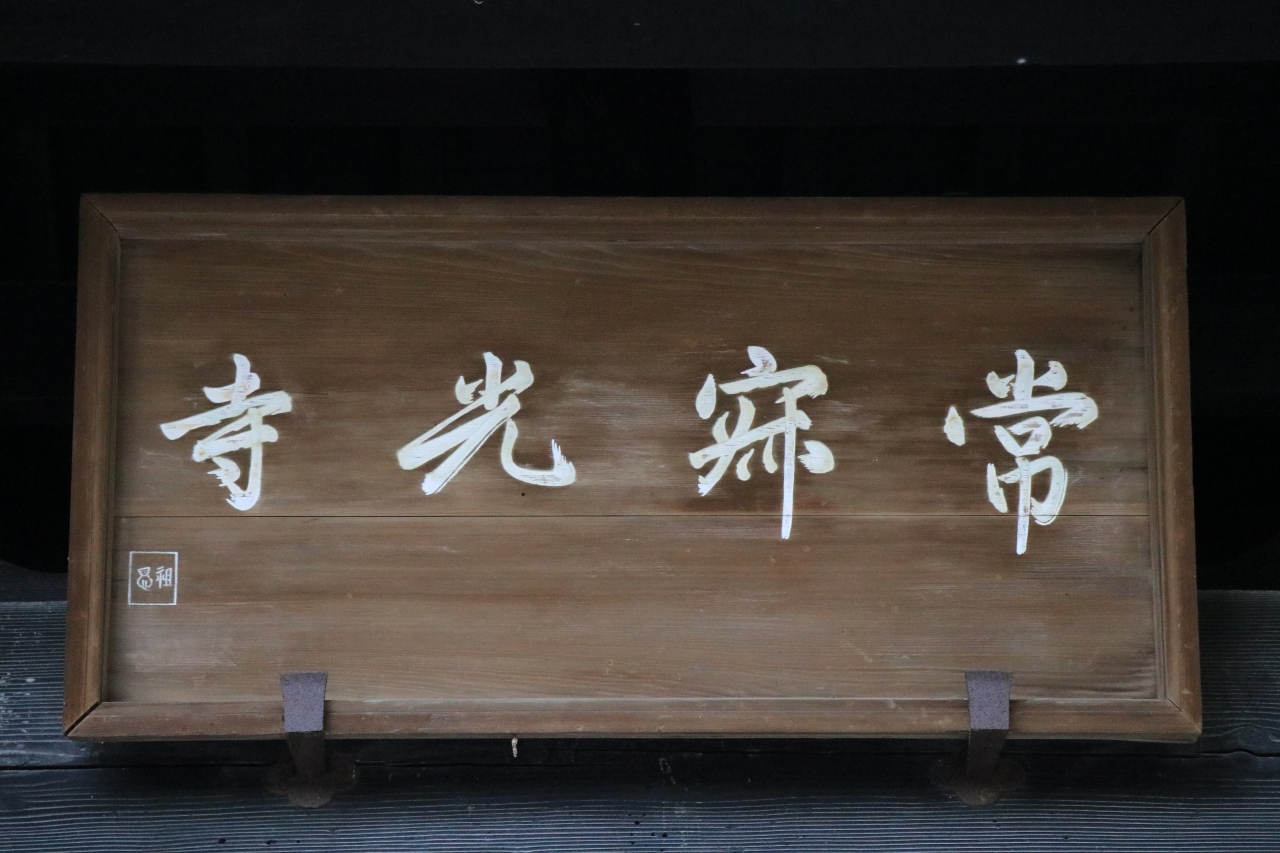 常寂光寺